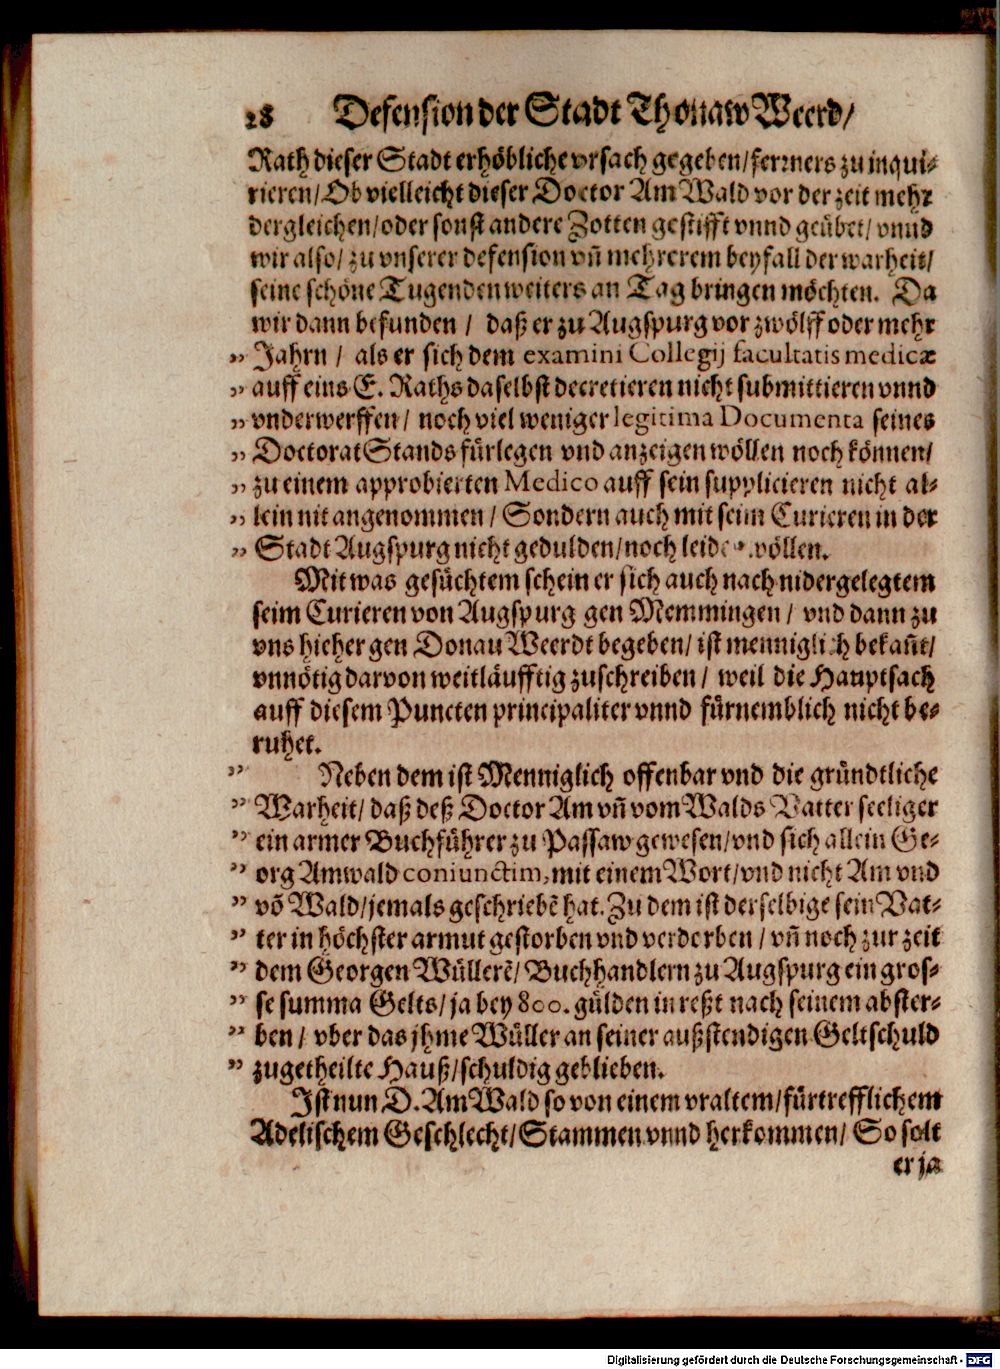 28 Defension der Stadt Thonaw Weerd/
Rath dieser Stadt erhöbliche vrsach gegeben/ ferrners zu inqui-
rieren/ Ob vielleicht dieser Doctor Am Wald vor der zeit mehr
dergleichen/ oder sonst andere Zotten gestifft vnnd geübet/ vnnd
wir also/ zu vnserer defension vñ mehrerem beyfall der warheit/
seine schöne Tugenden weiters an Tag bringen möchten. Da
wir dann befunden / daß er zu Augspurg vor zwölff oder mehr
„ Jahrn / als er sich dem examini Collegij facultatis medicæ
„ auff eins E. Raths daselbst decretieren nicht submittieren vnnd
„ vnderwerffen / noch viel weniger legitima Documenta seines
„ Doctorat Stands fürlegen vnd anzeigen wöllen noch können/
„ zu einem approbierten Medico auff sein supplicieren nicht al-
„ lein nit angenommen / Sondern auch mit seim Curieren in der
„ Stadt Augspurg nicht gedulden/ noch leide wöllen.
Mit was gesüchtem schein er sich auch nach nidergelegtem
seim Curieren von Augspurg gen Memmingen / vnd dann zu
vns hieher gen Donau Weerdt begeben/ ist menniglich bekañt/
vnnötig darvon weitläufftig zuschreiben / weil die Hauptsach
auff diesem Puncten principaliter vnnd fürnemblich nicht be-
ruhet.
„ Neben dem ist Menniglich offenbar vnd die gründtliche
„ Warheit/ daß deß Doctor Am vñ vom Walds Vatter seeliger
„ ein armer Buchführer zu Passaw gewesen/ vnd sich allein Ge-
„ org Amwald coniunctim, mit einem Wort/ vnd nicht Am vnd
„ võ Wald/ jemals geschriebẽ hat. Zu dem ist derselbige sein Vat-
„ ter in höchster armut gestorben vnd verdorben / vñ noch zur zeit
„ dem Georgen Wüllerẽ/ Buchhandlern zu Augspurg ein gros-
„ se summa Gelts/ ja bey 800. gülden in reßt nach seinem abster-
„ ben / vber das jhme Wüller an seiner außstendigen Geltschuld
„ zugetheilte Hauß/ schuldig geblieben.
Ist nun D. Am Wald so von einem vraltem/ fürtrefflichem
Adelischem Geschlecht/ Stammen vnnd herkommen/ So solt
er ja
Digitalisierung gefördert durch die Deutsche Forschungsgemeinschaft - DFG